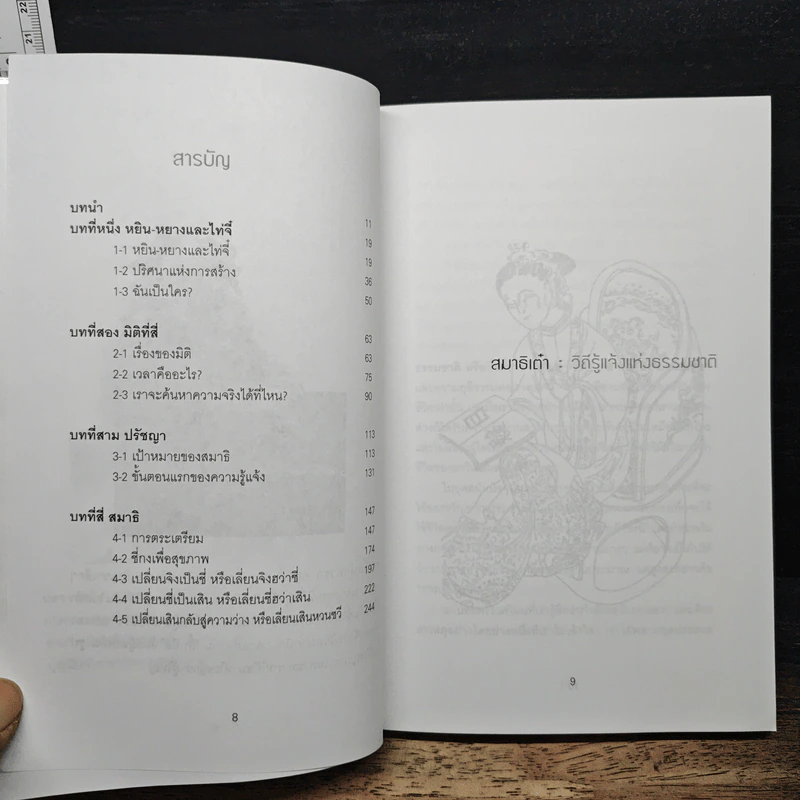 22
21
สารบัญ
บทนำ 11
บทที่หนึ่ง หยิน-หยางและไท่จี๋ 19
1-1 หยิน-หยางและไท่จี๋ 19
1-2 ปริศนาแห่งการสร้าง 36
1-3 ฉันเป็นใคร? 50
บทที่สอง มิติที่สี่ 63
2-1 เรื่องของมิติ 63
2-2 เวลาคืออะไร? 75
2-3 เราจะค้นหาความจริงได้ที่ไหน? 90
บทที่สาม ปรัชญา 113
3-1 เป้าหมายของสมาธิ 113
3-2 ขั้นตอนแรกของความรู้แจ้ง 131
บทที่สี่ สมาธิ 147
4-1 การตระเตรียม 147
4-2 ชี่กงเพื่อสุขภาพ 174
4-3 เปลี่ยนจิงเป็นชี่ หรือเลี่ยนจิงฮว่าชี่ 197
4-4 เปลี่ยนชี่เป็นเสิน หรือเลี่ยนชี่ฮว่าเสิน 222
4-5 เปลี่ยนเสินกลับสู่ความว่าง หรือเลี่ยนเสินหวนซวี 244
8
สมาธิเต๋า : วิถีรู้แจ้งแห่งธรรมชาติ
9